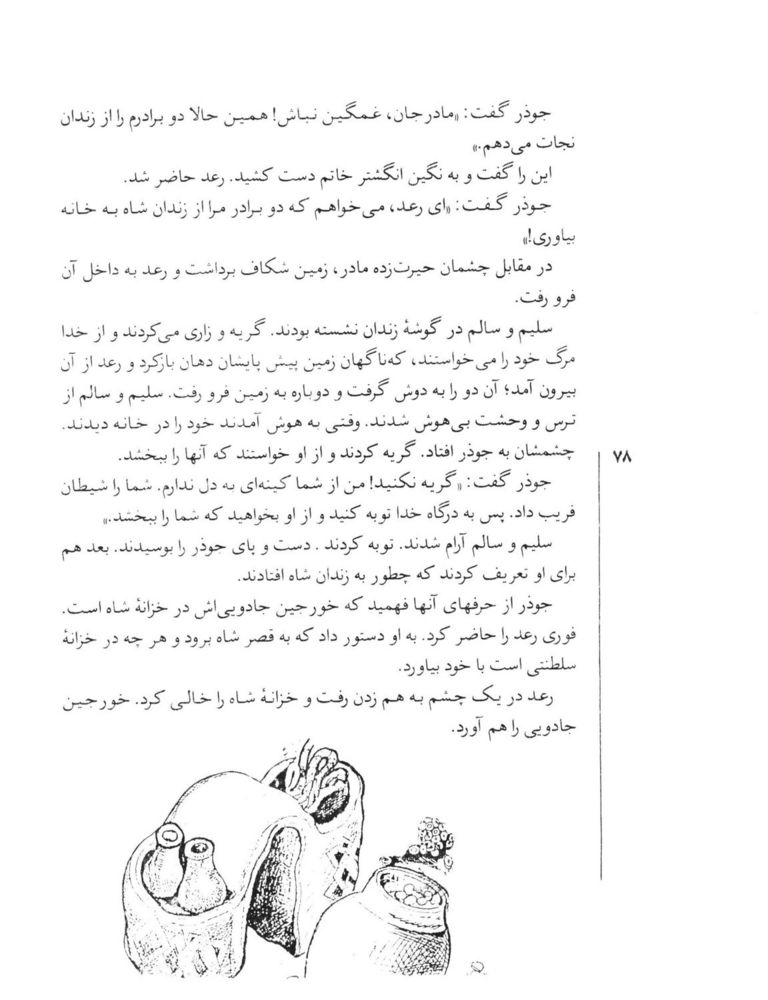 جوذر گفت: «مادرجان، غمگین نباش! همین حالا دو برادرم را از زندان
نجات می‌دهم.»
این را گفت و به نگین انگشتر خاتم دست کشید. رعد حاضر شد.
جوذر گفت: «ای رعد، می‌خواهم که دو برادر مرا از زندان شاه به خانه
بیاوری!»
در مقابل چشمان حیرت‌زده مادر، زمین شکاف برداشت و رعد به داخل آن
فرو رفت.
سلیم و سالم در گوشهٔ زندان نشسته بودند. گریه و زاری می‌کردند و از خدا
مرگ خود را می‌خواستند، که‌ناگهان زمین پیش پایشان دهان بازکرد و رعد از آن
بیرون آمد؛ آن دو را به دوش گرفت و دوباره به زمین فرو رفت. سلیم و سالم از
ترس و وحشت بی‌هوش شدند. وقتی به هوش آمدند خود را در خانه دیدند.
چشمشان به جوذر افتاد. گریه کردند و از او خواستند که آنها را ببخشد.
۷۸
جوذر گفت: «گریه نکنید! من از شما کینه‌ای به دل ندارم. شما را شیطان
فریب داد. پس به درگاه خدا توبه کنید و از او بخواهید که شما را ببخشد.»
سلیم و سالم آرام شدند. توبه کردند . دست و پای جوذر را بوسیدند. بعد هم
برای او تعریف کردند که چطور به زندان شاه افتادند.
جوذر از حرفهای آنها فهمید که خورجین جادویی‌اش در خزانهٔ شاه است.
فوری رعد را حاضر کرد. به او دستور داد که به قصر شاه برود و هر چه در خزانهٔ
سلطنتی است با خود بیاورد.
رعد در یک چشم به هم زدن رفت و خزانهٔ شاه را خالی کرد. خورجین
جادویی را هم آورد.